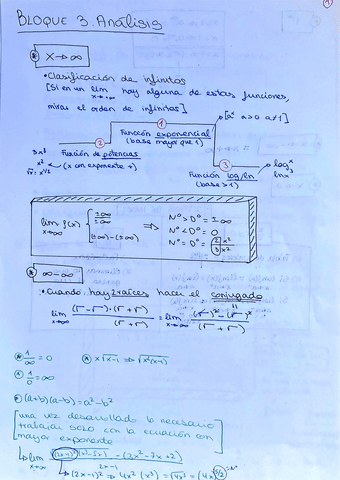 1
BLOQUE 3. Análisis
* X→∞
• Clasificación de infinitos
[Si en un lim x→∞ hay alguna de estas funciones,
miras el orden de infinitos]
1
[aˣ a>0 a≠1]
Función exponencial
(base mayor que 1)
2
Función de potencias
(x con exponente +)
√x = x^1/2
3
Función log/ln
(base>1)
lim f(x) x→∞
±∞
±∞
(±∞)-(±∞)
⇒
Nº>Dº = ±∞
Nº<Dº = 0
Nº=Dº = 2x²/3x²
* ∞-∞
• Cuando hay 2 raíces hacer el conjugado
lim x→∞ (√-√)·(√+√)/(√+√) = lim x→∞ (√)²-(√)²/(√+√)
1/∞ = 0
x√x-1 ⇒ √x²(x-1)
1/0 = ∞
(a+b)(a-b) = a²-b²
[una vez desarrollado lo necesario
trabajar solo con la ecuación con
mayor exponente]
lim x→∞
2x-1
(2x-1)² ⇒ 4x² (x³) = √4x⁵ =